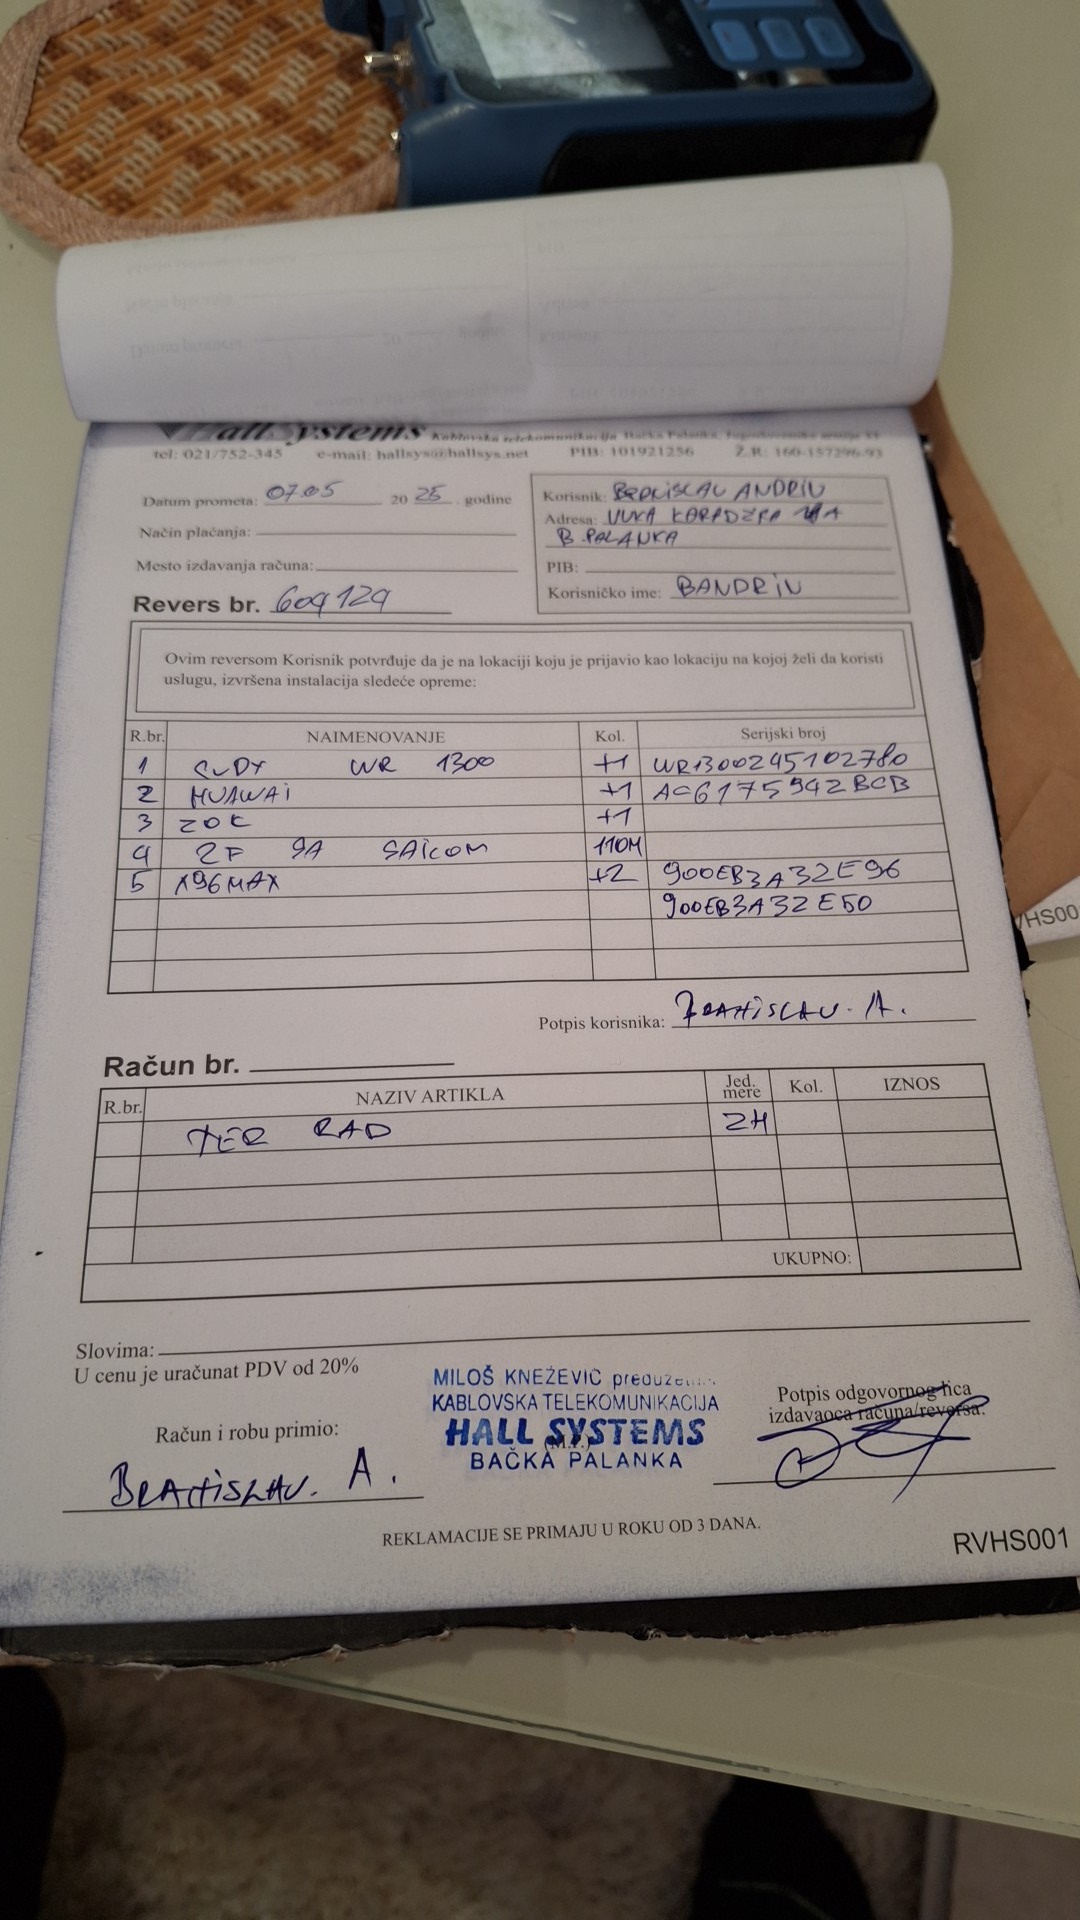 Hall Systems Kablovska telekomunikacija Bačka Palanka,
tel: 021/752-345 e-mail: hallsys@hallsys.net PIB: 101921256 Ž.R: 160-157296-93
Datum prometa: 07.05 2025. godine
Način plaćanja:
Mesto izdavanja računa:
Revers br. 609129
Korisnik: BRANISLAV ANDRIN
Adresa: VUKA KARADZRA A
B. PALANKA
PIB:
Korisničko ime: BANDRIN
Ovim reversom Korisnik potvrđuje da je na lokaciji koju je prijavio kao lokaciju na kojoj želi da koristi
uslugu, izvršena instalacija sledeće opreme:
R.br. NAIMENOVANJE Kol. Serijski broj
1 CUDY WR 1300 +1 WR1300245102780
2 HUAWAI +1 AC6175942BCB
3 ZOK +1
4 2F SA SAJCOM 110M
5 X96MAX +2 900EB3A32E96
900EB3A32E50
Potpis korisnika: BRANISLAV. A.
Račun br.
R.br. NAZIV ARTIKLA Jed. mere Kol. IZNOS
TER RAD 2H
UKUPNO:
Slovima:
U cenu je uračunat PDV od 20%
MILOŠ KNEŽEVIĆ
KABLOVSKA TELEKOMUNIKACIJA
HALL SYSTEMS
(M.P.)
BAČKA PALANKA
Potpis odgovornog lica
izdavaoca računa/reversa:
Račun i robu primio:
BRANISLAV. A.
REKLAMACIJE SE PRIMAJU U ROKU OD 3 DANA.
RVHS001